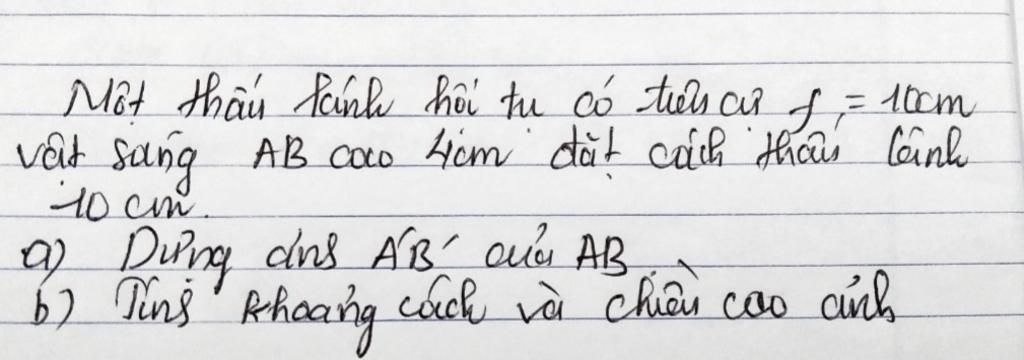 Một thấu kính hội tụ có tiêu cự f = 10cm
vật sáng AB cao 4cm đặt cách thấu kính
10 cm.
a) Dựng ảnh A'B' của AB
b) Tính khoảng cách và chiều cao ảnh